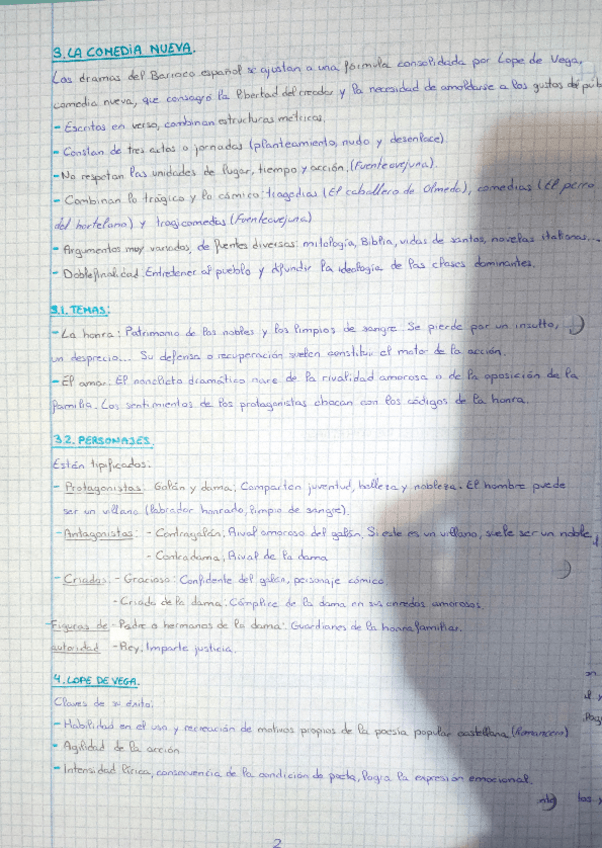 3. LA COMEDIA NUEVA.
Los dramas del Barroco español se ajustan a una fórmula consolidada por Lope de Vega,
comedia nueva, que consagró la libertad del creador y la necesidad de amoldarse a los gustos del púb
- Escritos en verso, combinan estructuras métricas.
- Constan de tres actos o jornadas (planteamiento, nudo y desenlace)
- No respetan las unidades de lugar, tiempo y acción. (Fuenteovejuna).
- Combinan lo trágico y lo cómico: tragedias (El caballero de Olmedo), comedias (El perro
del hortelano) y tragicomedias (Fuenteovejuna)
- Argumentos muy variados, de fuentes diversas: mitología, Biblia, vidas de santos, novelas italianas...
- Doble finalidad. Entretener al pueblo y difundir la ideología de las clases dominantes.
3.1. TEMAS:
- La honra: Patrimonio de los nobles y los limpios de sangre. Se pierde por un insulto,
un desprecio... Su defensa o recuperación suelen constituir el motor de la acción.
- El amor. El conflicto dramático nace de la rivalidad amorosa o de la oposición de la
familia. Los sentimientos de los protagonistas chocan con los códigos de la honra.
3.2. PERSONAJES.
Están tipificados:
- Protagonistas: Galán y dama. Comparten juventud, belleza y nobleza. El hombre puede
ser un villano (labrador honrado, limpio de sangre).
- Antagonistas: - Contragalán. Rival amoroso del galán. Si este es un villano, suele ser un noble.
- Contradama. Rival de la dama
- Criados: - Gracioso: Confidente del galán, personaje cómico.
- Criada de la dama: Cómplice de la dama en sus enredos amorosos.
- Figuras de - Padre o hermanos de la dama: Guardianes de la honra familiar.
autoridad - Rey. Imparte justicia.
4. LOPE DE VEGA.
Claves de su éxito:
- Habilidad en el uso y recreación de motivos propios de la poesía popular castellana (Romancero)
- Agilidad de la acción
- Intensidad lírica, consecuencia de la condición de poeta, logra la expresión emocional.
2